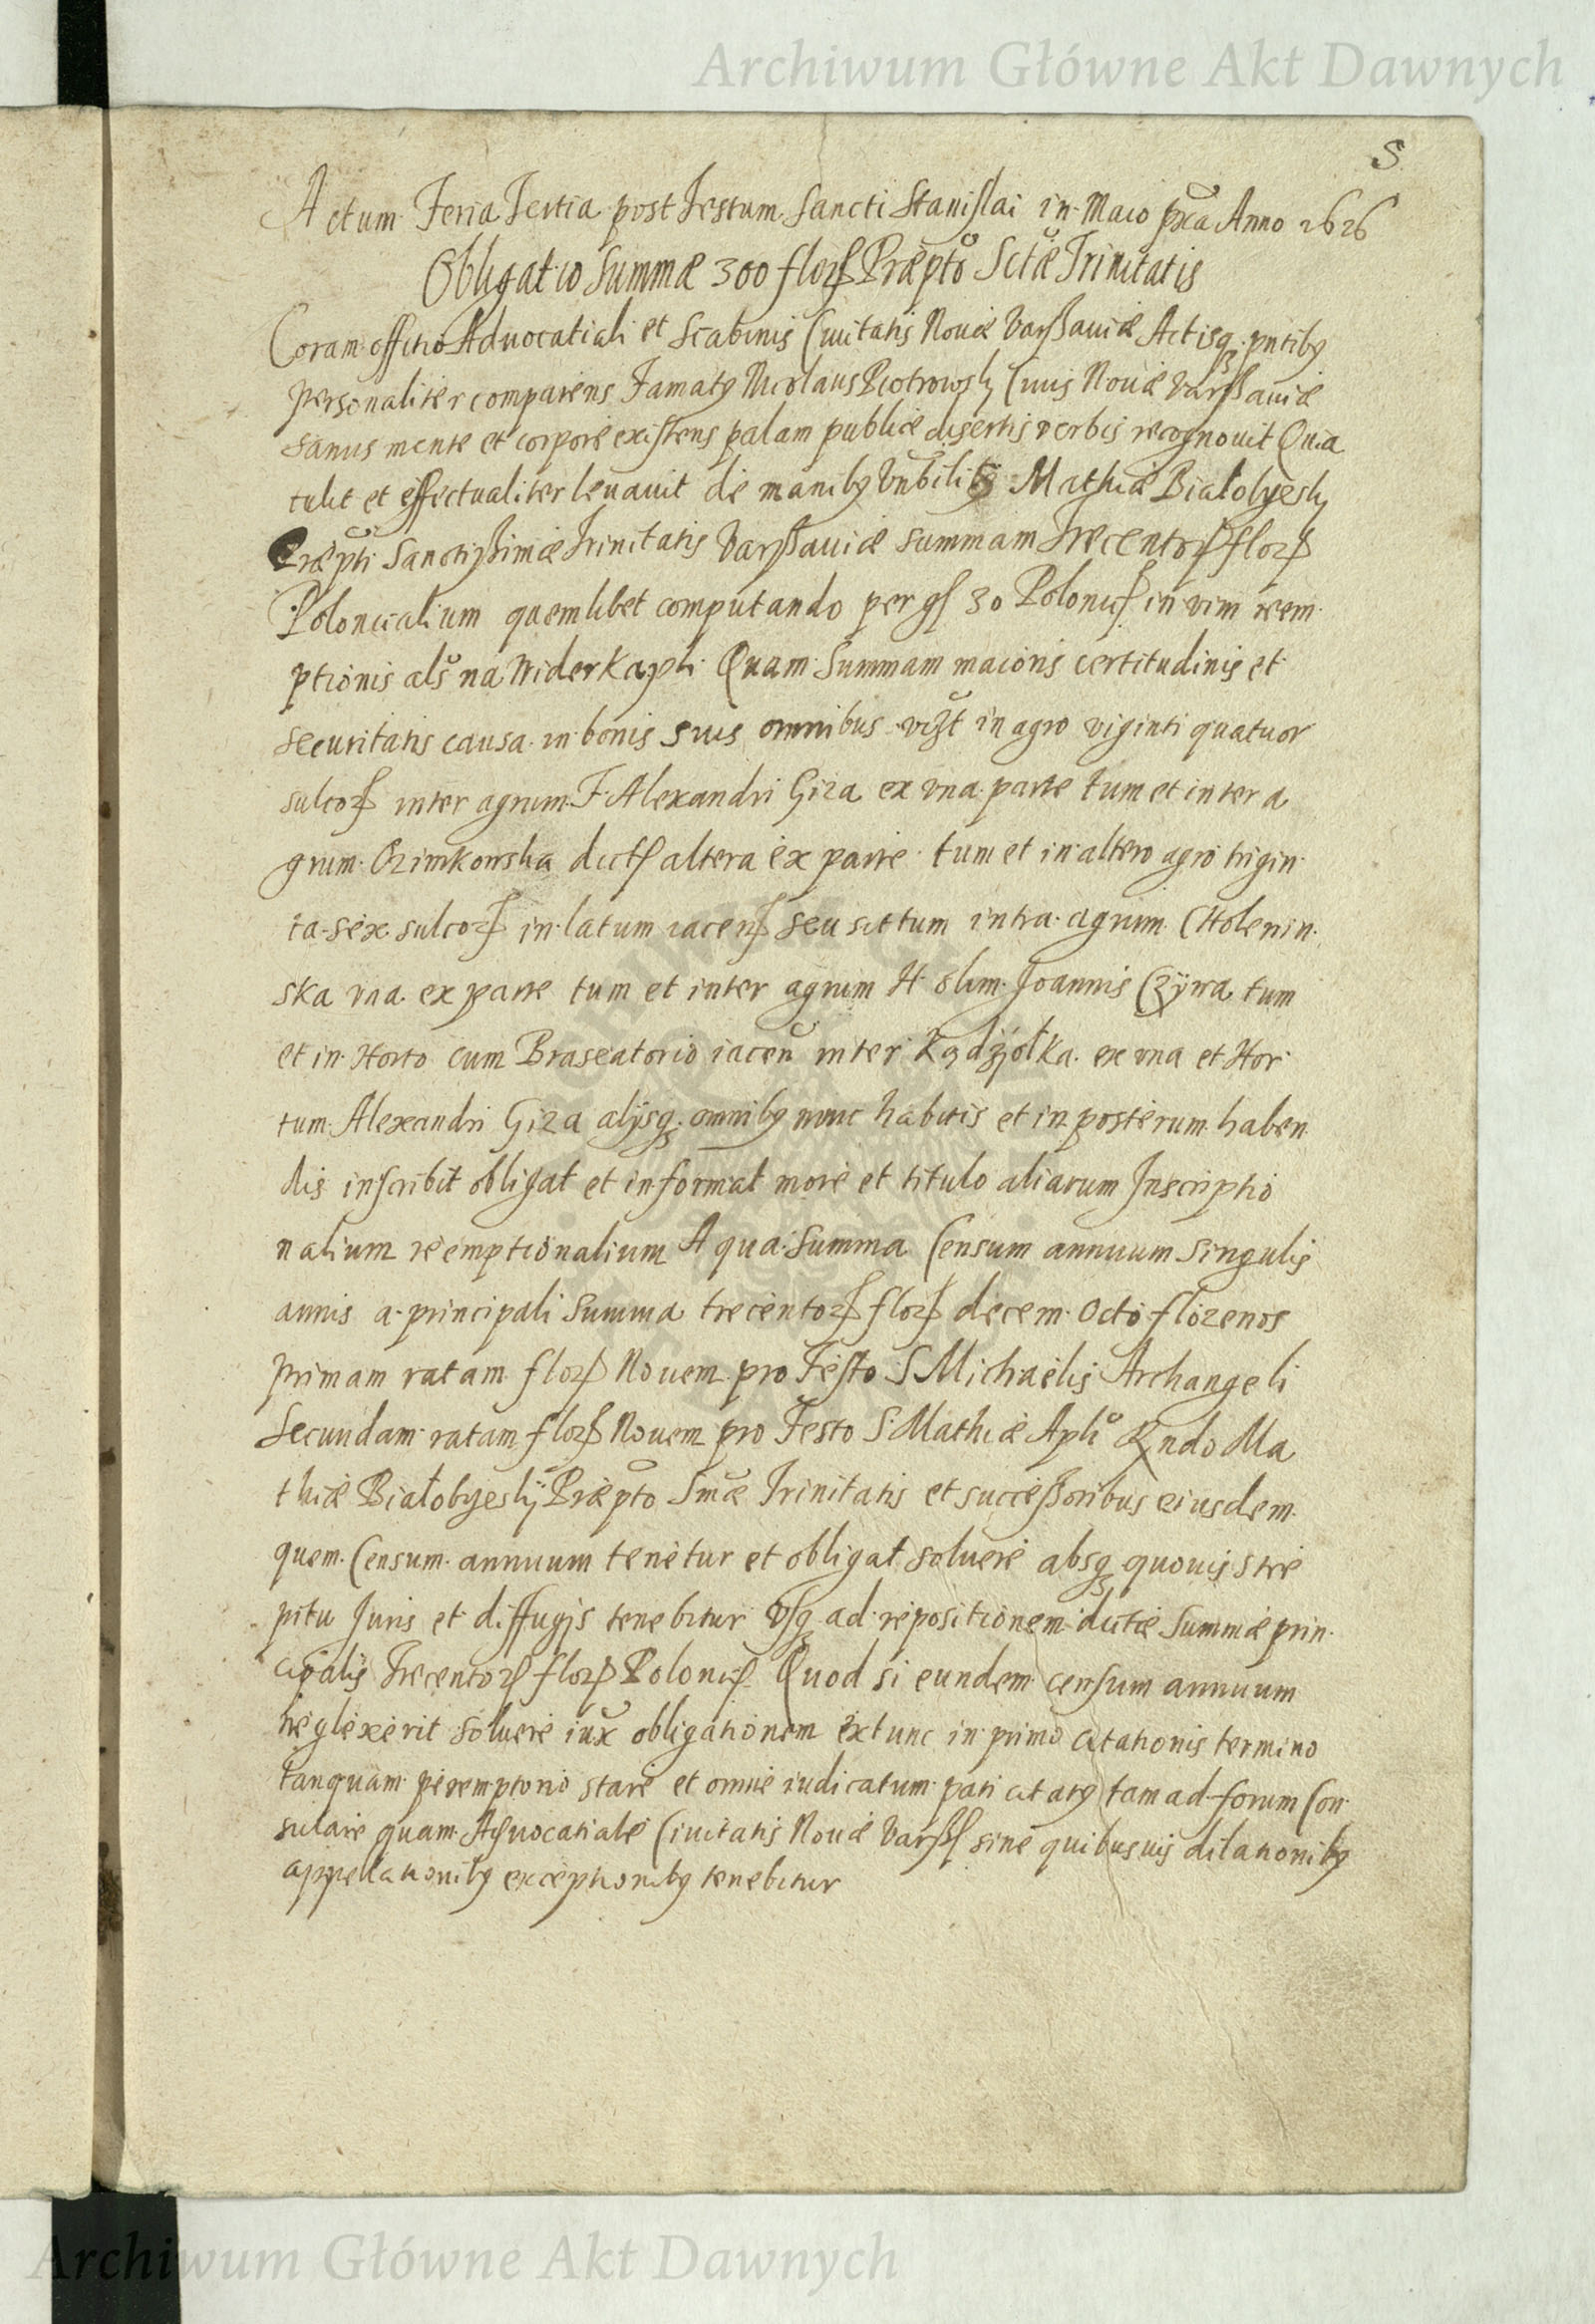 Archiwum Główne Akt Dawnych
5
Actum Feria Tertia post Festum Sancti Stanislai in Maio Anno 1626
Obligatio Summæ 300 flor Præpto Sctæ Trinitatis
Coram officio Aduocatiali et Scabinis Ciuitatis Nouæ Varssauiæ Actisq pntibg
personaliter comparens Famatg Nicolaus Piotrowsky Ciuis Nouæ Varssauiæ
sanus mente et corpore existens palam publice disertis verbis recognouit Quia
tulit et effectualiter leuauit de manibg Mathiæ Białobyesky
Præpti Sanctissimæ Trinitatis Varssauiæ summam Trecentor flor
Polonicalium quemlibet computando per gs 30 Polonic in vim reem
ptionis als na Widerkaph Quam Summam maioris certitudinis et
securitatis causa in bonis suis omnibus vizt in agro viginti quatuor
sulcor inter agrum F Alexandri Giza ex vna parte tum et inter a
grum Ozimkowska dict altera ex parte tum et in altero agro trigin
ta sex sulcor in latum iacen seu sittum intra agrum Cholenin
ska vna ex parte tum et inter agrum H olim Joannis Czÿwa tum
et in Horto cum Braseatorio iacen inter Kądziołka ex vna et Hor
tum Alexandri Giza alijsq omnibg nunc habitis et in posterum haben
dis inscribit obligat et informat more et titulo aliarum Inscriptio
nalium reemptionalium A qua Summa Censum annuum singulis
annis a principali Summa trecentor flor decem octo florenos
primam ratam flor Nouem pro Festo S Michaelis Archangeli
Secundam ratam flor Nouem pro Festo S Mathiæ Apli Rndo Ma
thiæ Białobyeskÿ Præpto Smæ Trinitatis et successoribus eiusdem
quem Censum annuum tenetur et obligat soluere absq quouis stre
pitu Juris et diffugijs tenebitur vsq ad repositionem dictæ Summæ prin
cipalis Trecentor flor Polonic Quod si eundem censum annuum
neglexerit soluere iux obligationem extunc in primo citationis termino
tanquam peremptorio stare et omne iudicatum pati citatg tam ad forum Con
sulare quam Aduocatiale Ciuitatis Nouæ Varss sine quibusuis dilationibg
appellationibg exceptionibg tenebitur
Archiwum Główne Akt Dawnych